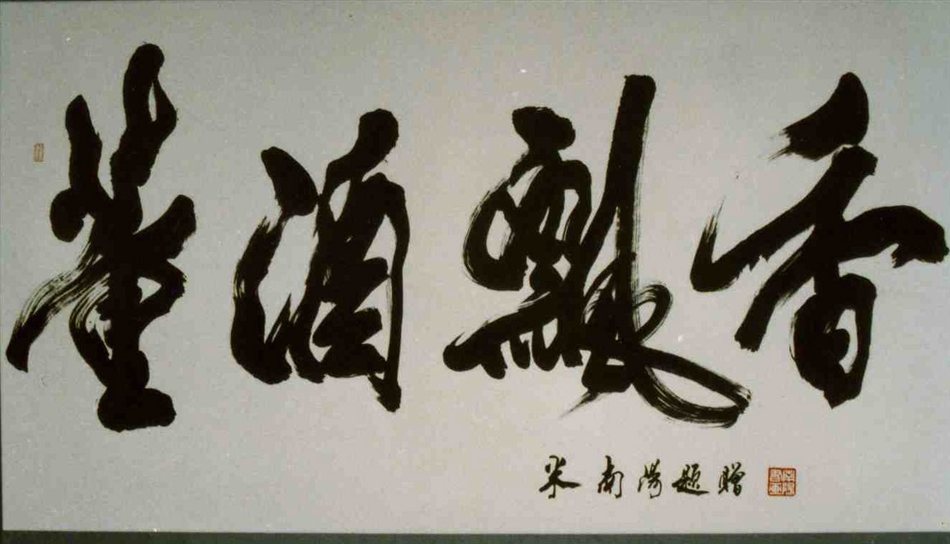 董酒飘香
米南阳题赠